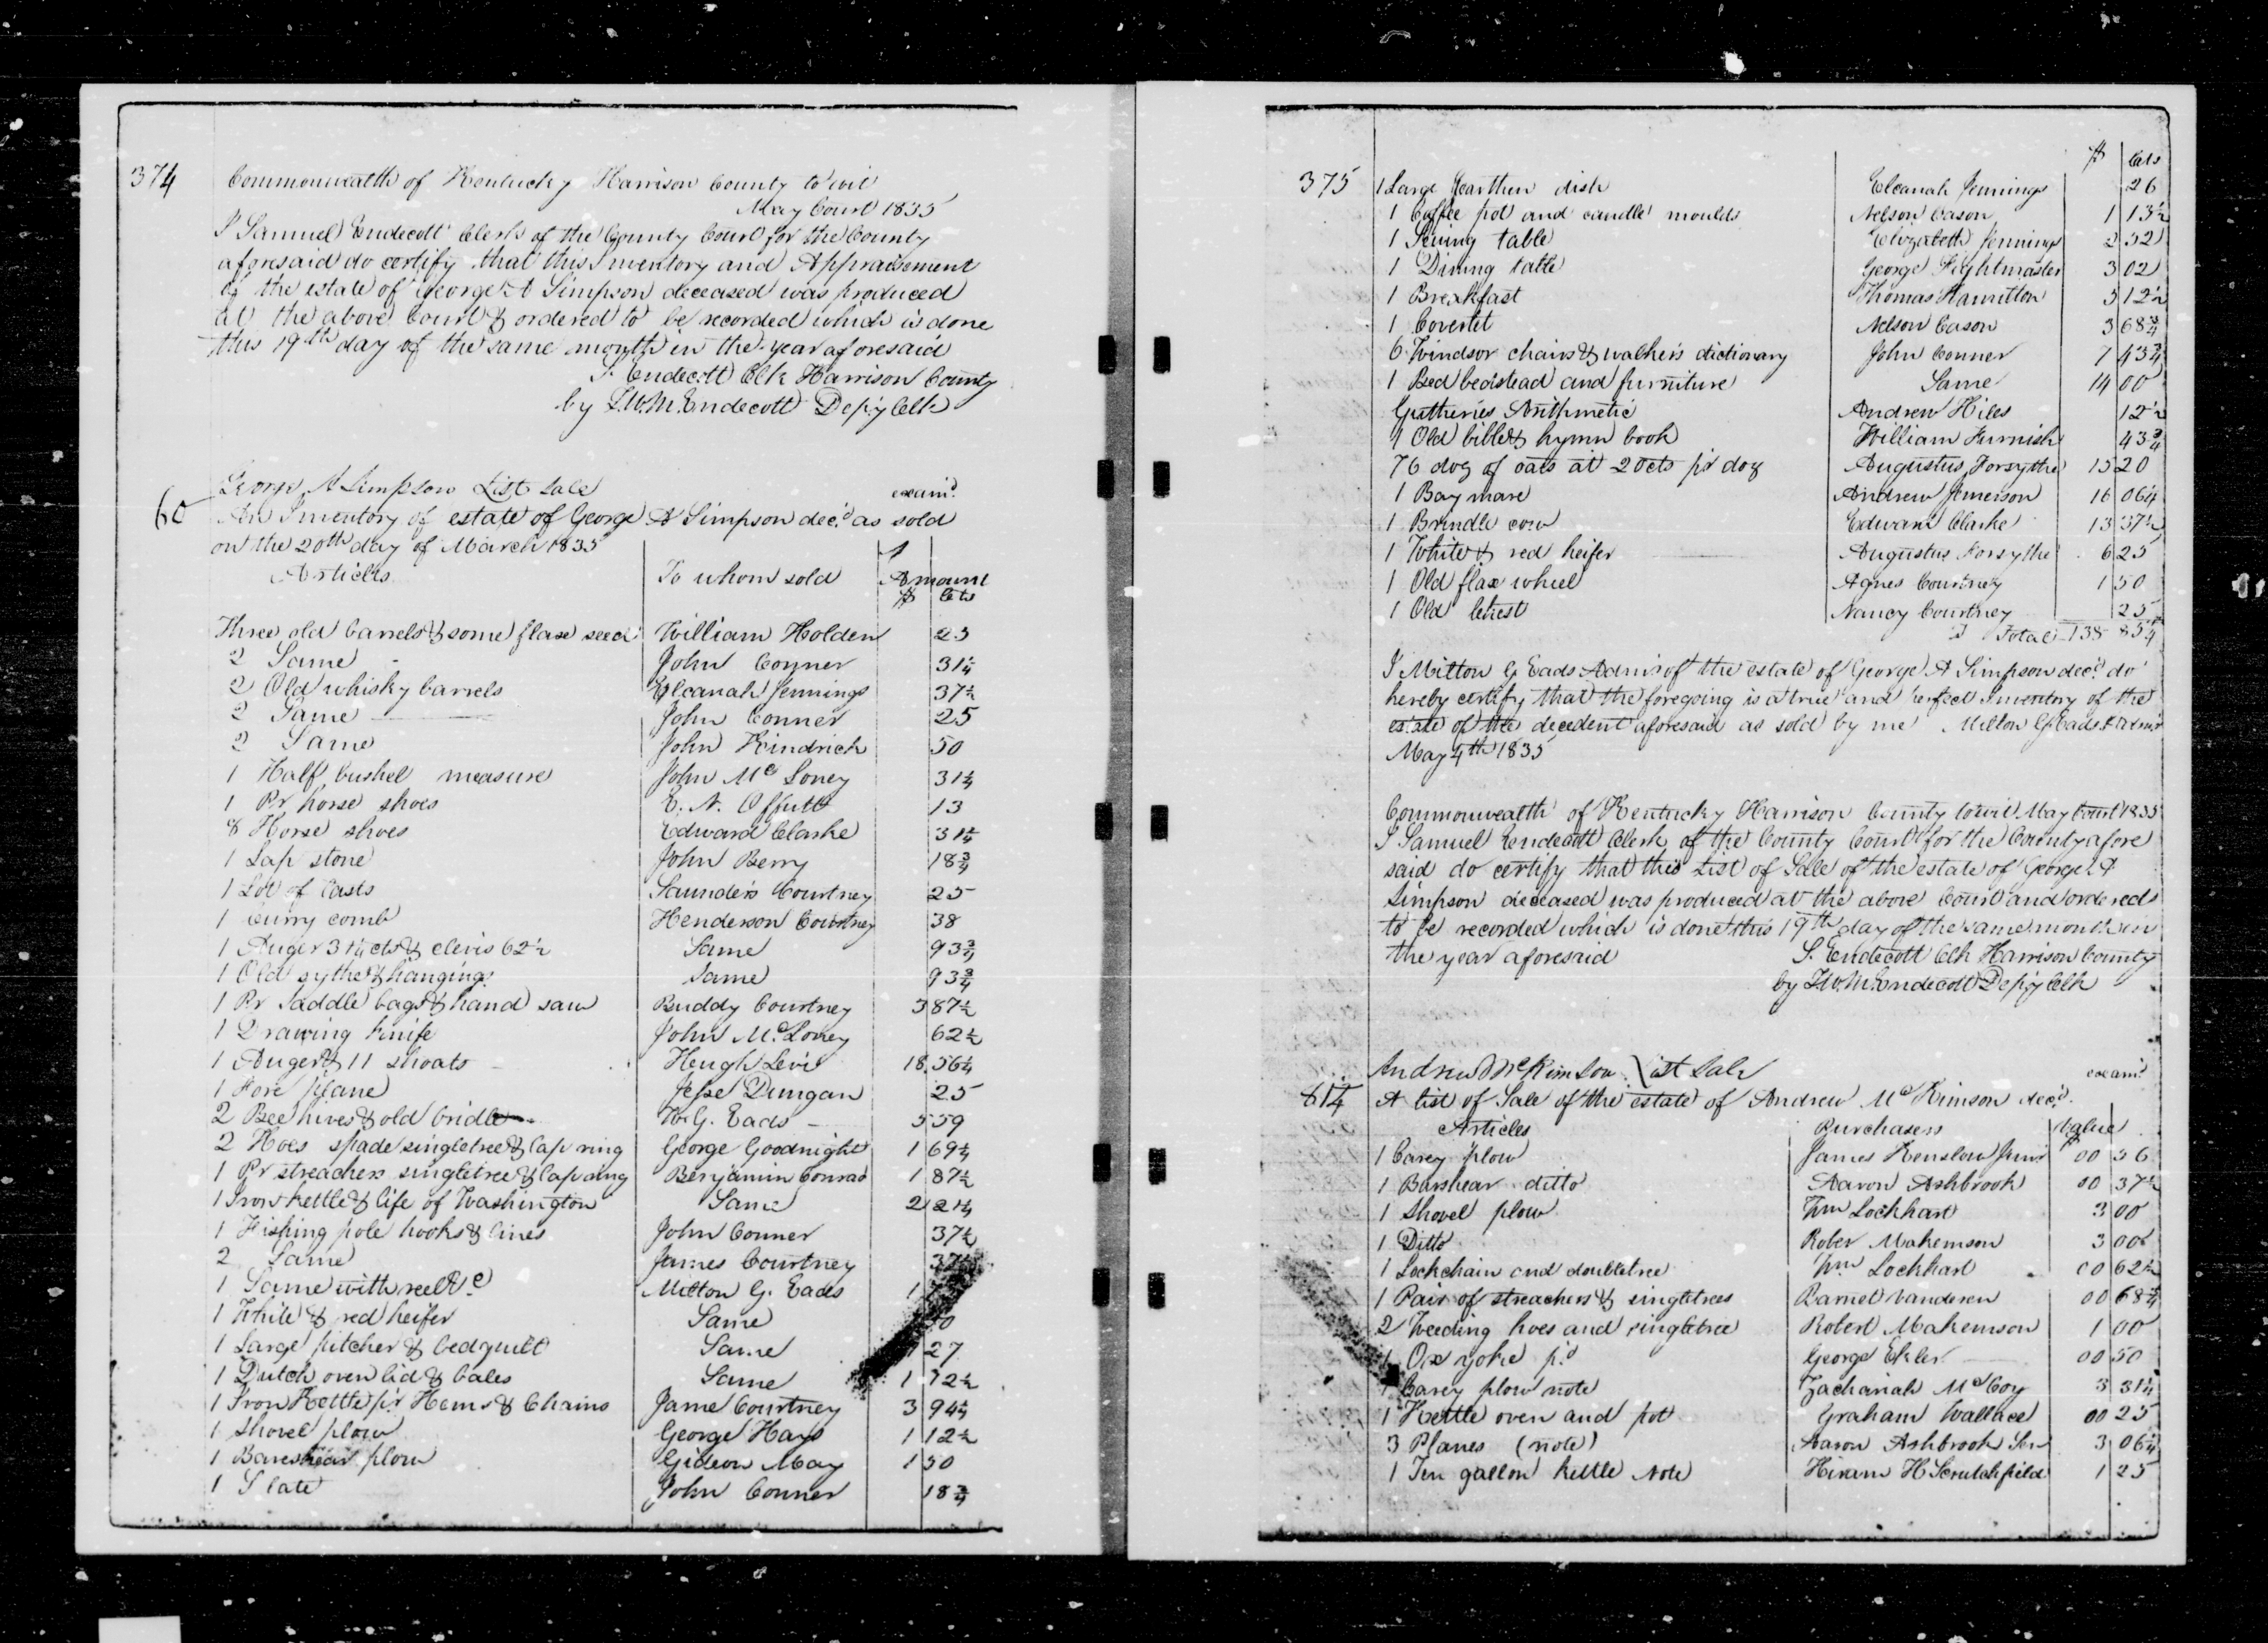 374
Commonwealth of Kentucky Harrison County to wit
May Court 1835
I Samuel Endecott Clerk of the County Court for the County
aforesaid do certify that this Inventory and Appraisement
of the estate of George A Simpson deceased was produced
at the above Court & ordered to be recorded which is done
this 19th day of the same month in the year aforesaid
S. Endecott Clk Harrison County
by L.W.M. Endecott Depy Clk
George A Simpson List Sale
examd.
60 An Inventory of estate of George A Simpson decd. as sold
on the 20th day of March 1835
Articles To whom sold Amount
$ Cts
Three old barrels & some flax seed William Holden 25
2 Same John Conner 31¼
2 Old whisky barrels Elcanah Jennings 37½
2 Same John Conner 25
2 Same John Hindrich 50
1 Half bushel measure John McLoney 31¼
1 Pr horse shoes E. N. Offutt 13
8 Horse shoes Edward Clarke 31¼
1 Lap stone John Berry 18¾
1 Lot of Casts Saunders Courtney 25
1 Curry comb Henderson Courtney 38
1 Auger 31¼ cts & clevis 62½ Same 93¾
1 Old sythe & hangings Same 93¾
1 Pr Saddle bags & hand saw Buddy Courtney 3 87½
1 Drawing knife John McLoney 62½
1 Auger & 11 shoats Heugh Levi 18.56¼
1 Fore plane Jesse Dungan 25
2 Bee hives & old bridle W.G. Eads 5 59
2 Hoes spade singletree & lap ring George Goodnight 1 69¼
1 Pr streachers singletree & lap ring Benjamin Conrad 1 87½
1 Iron kettle & life of Washington Same 2 21¼
1 Fishing pole hooks & lines John Conner 37½
2 Same James Courtney 37½
1 Same with reel &c Milton G. Eads 1
1 White & red heifer Same
1 Large pitcher & bedquilt Same 27
1 Dutch oven lid & bales Same 1 12½
1 Iron Kettle pr Hems & Chains Jame Courtney 3 94¼
1 Shovel plow George Hays 1 12½
1 Bareshear plow Gideon May 1 50
1 Slate John Conner 18¾
375
$ Cts
1 Large Earthen dish Elcanah Jennings 26
1 Coffee pot and candle moulds Nelson Cason 1 13½
1 Sewing table Elizabeth Jennings 2 52
1 Dining table George Fightmaster 3 02
1 Breakfast Thomas Hamilton 3 12½
1 Coverlet Nelson Cason 3 68¾
6 Windsor chairs & walkers dictionary John Conner 7 43¾
1 Bed bedstead and furniture Same 14 00
Gutheries Arithmetic Andrew Hiles 12½
1 Old bible & hymn book William Furnish 43¾
76 doz of oats at 20cts pr doz Augustus Forsythe 15 20
1 Bay mare Andrew Jemerson 16 06¼
1 Brindle cow Edward Clarke 13 37½
1 White & red heifer Augustus Forsythe 6 25
1 Old flax wheel Agnes Courtney 1 50
1 Old Chest Nancy Courtney 25
Total 138 85¼
I Milton G Eads Admr of the estate of George A Simpson decd. do
hereby certify that the foregoing is a true and perfect Inventory of the
estate of the decedent aforesaid as sold by me Milton G Eads Admr
May 4th 1835
Commonwealth of Kentucky Harrison County to wit May Court 1835
I Samuel Endecott Clerk of the County Court for the County afore
said do certify that this List of Sale of the estate of George A
Simpson deceased was produced at the above Court and ordered
to be recorded which is done this 19th day of the same month in
the year aforesaid S. Endecott Clk Harrison County
by L.W.M. Endecott Depy Clk
Andrew McKimson List Sale
examd.
A list of Sale of the estate of Andrew McKimson decd.
Articles Purchasers Value
$
1 Carey plow James Renslow Junr 00 56
1 Barshear ditto Aaron Ashbrook 00 37½
1 Shovel plow Wm Lockhart 3 00
1 Ditto Rober Makemson 3 00
1 Lockchain and doubletree Wm Lockhart 00 62½
1 Pair of streachers & singletrees Barnet Vanderen 00 68¾
2 Weeding hoes and singletree Robert Makemson 1 00
1 Ox yoke pd George Ekler 00 50
1 Carey plow note Zachariah McCoy 3 31¼
1 Kettle oven and pot Graham Wallace 00 25
3 Planes (note) Aaron Ashbrook Sen 3 06¼
1 Ten gallon kettle Note Hiram H Scrutchfield 1 25